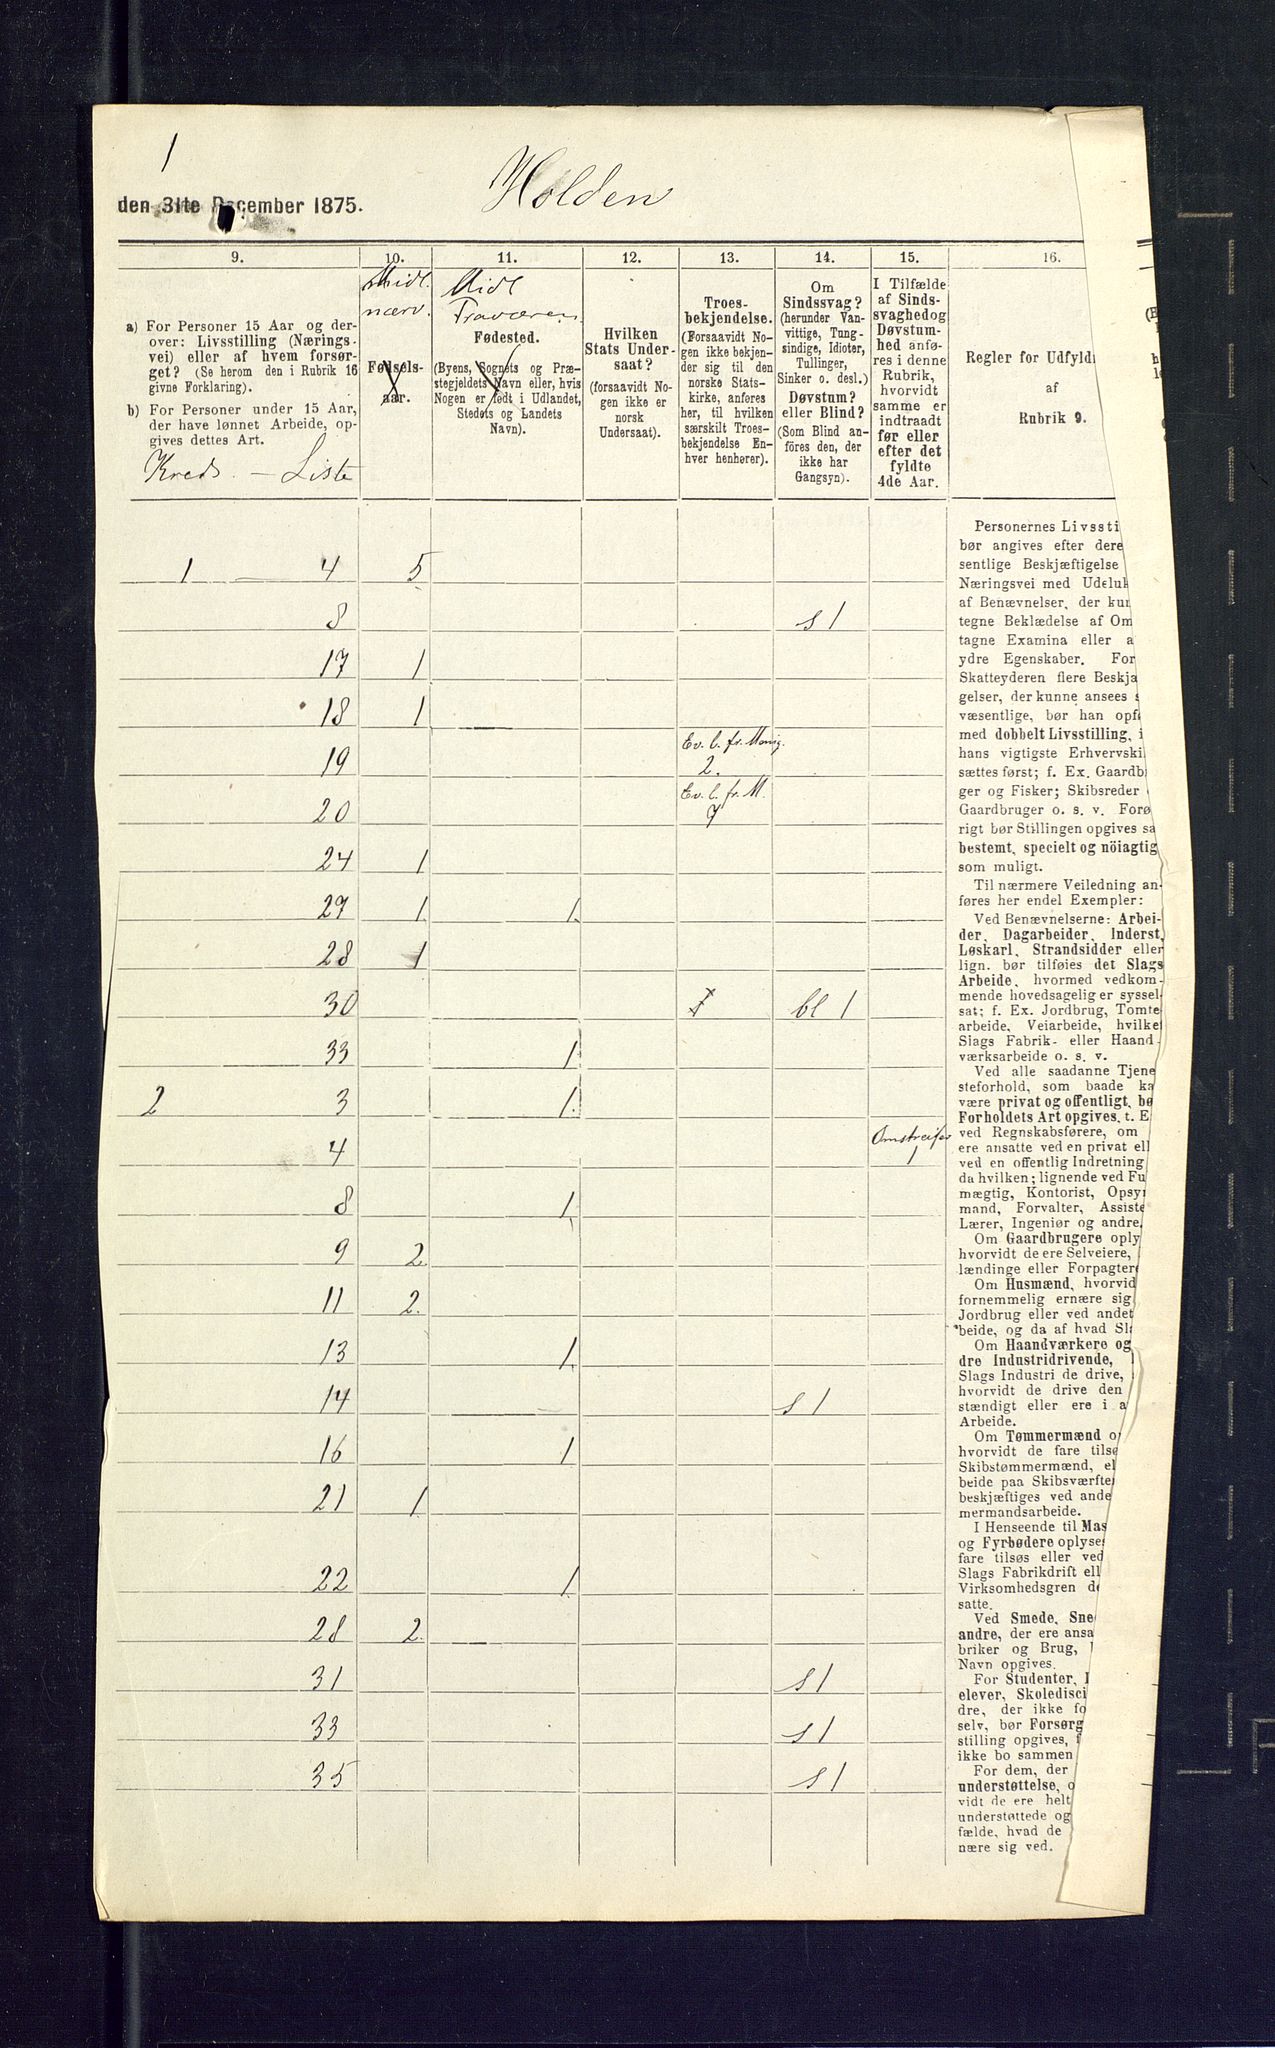 1
Holden
den 31te December 1875.
9. 10. 11. 12. 13. 14. 15. 16.
a) For Personer 15 Aar og der-
over: Livsstilling (Nærings-
vei) eller af hvem forsør-
get? (Se herom den i Rubrik 16
givne Forklaring).
b) For Personer under 15 Aar,
der have lønnet Arbeide, op-
gives dettes Art.
Kreds. — Liste
Midl.
nærv.
Fødsels-
aar.
Midl
Fraværen.
Fødested.
(Byens, Sognets og Præ-
stegjeldets Navn eller, hvis
Nogen er født i Udlandet,
Stedets og Landets
Navn).
Hvilken
Stats Under-
saat?
(forsaavidt No-
gen ikke er
norsk
Undersaat).
Troes-
bekjendelse.
(Forsaavidt No-
gen ikke bekjen-
der sig til den
norske Stats-
kirke, anføres
her, til hvilken
særskilt Troes-
bekjendelse En-
hver henhører).
Om
Sindssvag?
(herunder Van-
vittige, Tung-
sindige, Idioter,
Tullinger,
Sinker o. desl.)
Døvstum?
eller Blind?
(Som Blind an-
föres den, der
ikke har
Gangsyn).
I Tilfælde
af Sinds-
svaghed og
Døvstum-
hed anfø-
res i denne
Rubrik,
hvorvidt
samme er
indtraadt
før eller
efter det
fyldte
4de Aar.
Regler for Udfyldn
af
Rubrik 9.
1 4 5
8 s 1
17 1
18 1
Ev. l. fr. Menig.
19 2.
Ev. l. fr. M.
20 7
24 1
27 1 1
28 1
30 1 bl 1
33 1
2 3 1
Omstreifer
4 1
8 1
9 2
11 2.
13 1
14 s 1
16 1
21 1
22 1
28 2.
31 s 1
33 s 1
35 s 1
Personernes Livssti
bør angives efter dere
sentlige Beskjæftigelse
Næringsvei med Udeluk
af Benævnelser, der kun
tegne Beklædelse af Om
tagne Examina eller a
ydre Egenskaber. For
Skatteyderen flere Beskjæ
gelser, der kunne ansees s
væsentlige, bør han opfø
med dobbelt Livsstilling, i
hans vigtigste Erhvervskil
sættes først; f. Ex. Gaardb
ger og Fisker; Skibsreder
Gaardbruger o. s. v. Forø
rigt bør Stillingen opgives sa
bestemt, specielt og nöiagtig
som muligt.
Til nærmere Veiledning an-
føres her endel Exempler:
Ved Benævnelserne: Arbei-
der, Dagarbeider, Inderst,
Løskarl, Strandsidder eller
lign. bør tilføies det Slags
Arbeide, hvormed vedkom-
mende hovedsagelig er syssel-
sat; f. Ex. Jordbrug, Tomte-
arbeide, Veiarbeide, hvilket
Slags Fabrik- eller Haand-
værksarbeide o. s. v.
Ved alle saadanne Tjene
steforhold, som baade ka
være privat og offentligt, bø
Forholdets Art opgives, t. E
ved Regnskabsførere, om
ere ansatte ved en privat ell
ved en offentlig Indretning
da hvilken; lignende ved Fu
mægtig, Kontorist, Opsy
mand, Forvalter, Assiste
Lærer, Ingeniør og andre.
Om Gaardbrugere oply
hvorvidt de ere Selveiere,
lændinge eller Forpagtere
Om Husmænd, hvorvid
fornemmelig ernære sig
Jordbrug eller ved andet
beide, og da af hvad Sla
Om Haandværkere og
dre Industridrivende,
Slags Industri de drive,
hvorvidt de drive den
stændigt eller ere i a
Arbeide.
Om Tømmermænd o
hvorvidt de fare tilsø
Skibstømmermænd, el
beide paa Skibsværfte
beskjæftiges ved ande
mermandsarbeide.
I Henseende til Mas
og Fyrbødere oplyses
fare tilsøs eller ved
Slags Fabrikdrift ell
Virksomhedsgren de
satte.
Ved Smede, Sne
andre, der ere ansa
briker og Brug,
Navn opgives.
For Studenter, L
elever, Skoledisci
dre, der ikke fo
selv, bør Forsørg
stilling opgives, f
ikke bo sammen
For dem, der
understøttelse, o
vidt de ere helt
understøttede og
fælde, hvad de
nære sig ved.